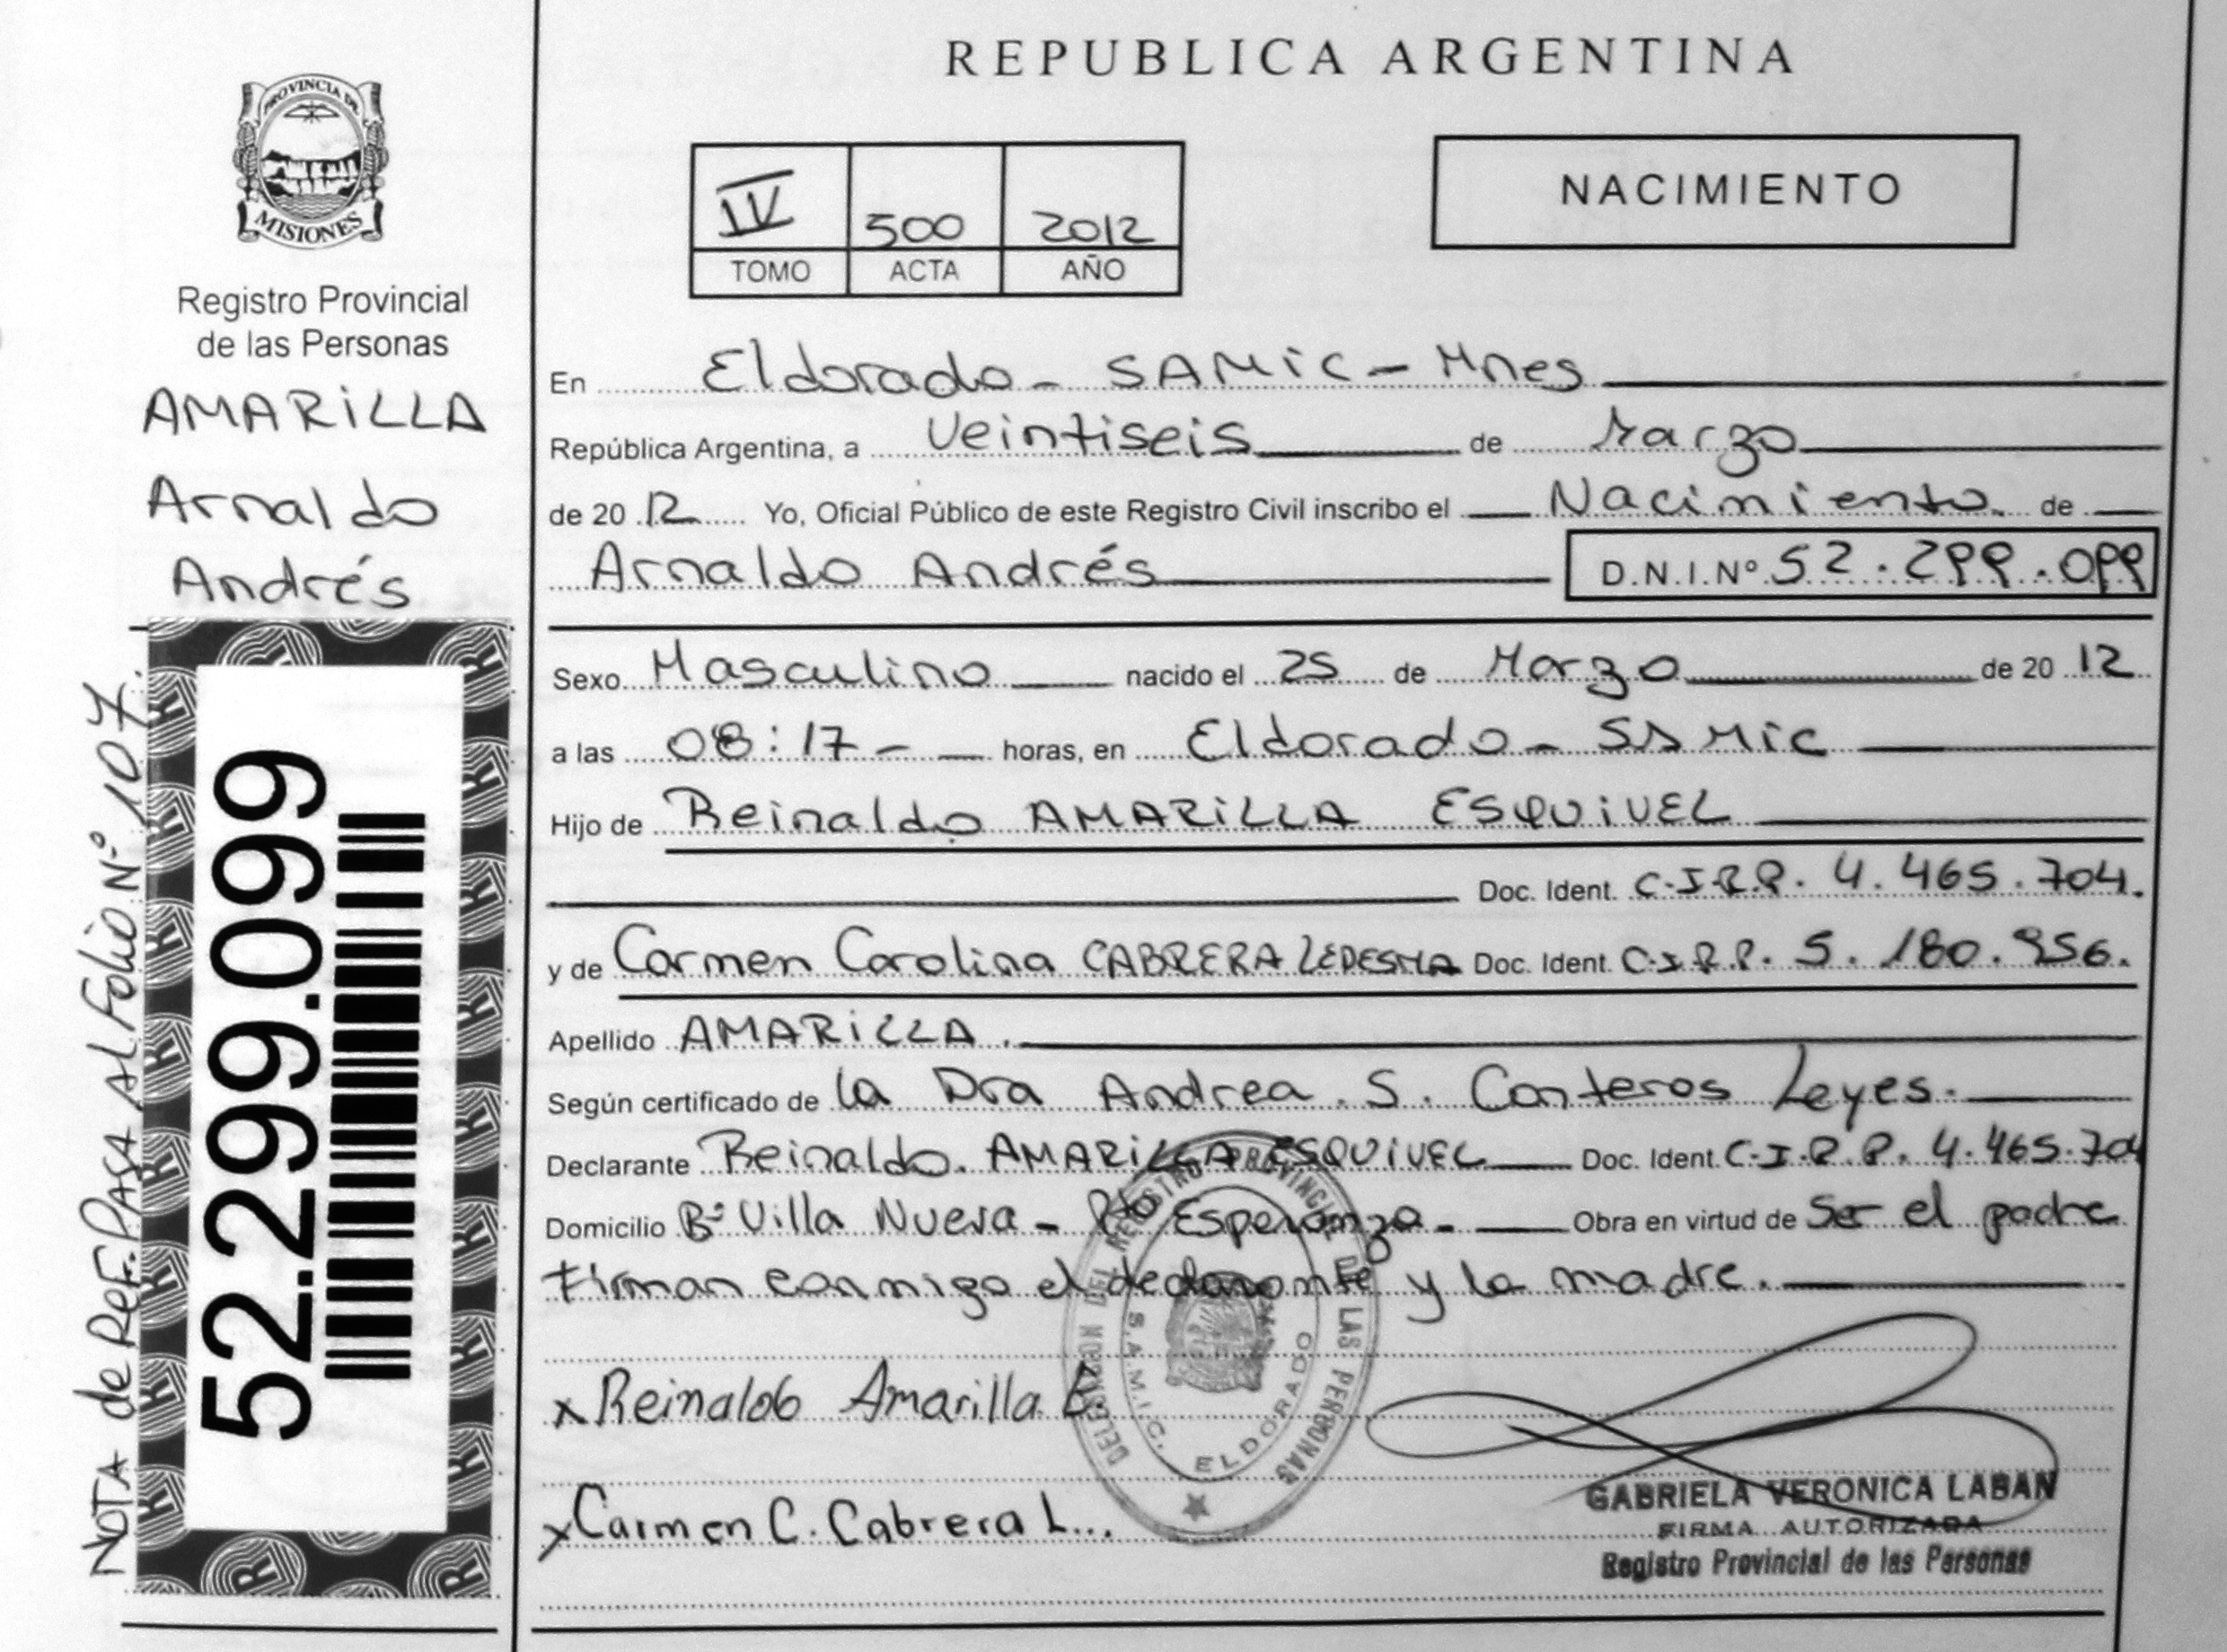 PROVINCIA DE
MISIONES
Registro Provincial
de las Personas
AMARiLLA
Arnaldo
Andrés
NOTA de REF. PASA AL Folio Nº 107.
52.299.099
REPUBLICA ARGENTINA
IV 500 2012
TOMO ACTA AÑO
NACIMIENTO
En Eldorado - SAMiC - Mnes
República Argentina, a Veintiseis de Marzo
de 20 12 Yo, Oficial Público de este Registro Civil inscribo el Nacimiento de
Arnaldo Andrés D.N.I.Nº 52.299.099
Sexo Masculino nacido el 25 de Marzo de 20 12
a las 08:17 - horas, en Eldorado - SAMic
Hijo de Reinaldo AMARiLLA ESQUiVEL
Doc. Ident. C.I.R.P. 4.465.704.
y de Carmen Carolina CABRERA LEDESMA Doc. Ident. C.I.R.P. 5.180.956.
Apellido AMARiLLA.
Según certificado de la Dra Andrea S. Conteros Leyes.
Declarante Reinaldo AMARiLLA ESQUiVEL Doc. Ident. C.I.R.P. 4.465.704
Domicilio Bº Villa Nueva - Pto Esperanza - Obra en virtud de Ser el padre
Firman conmigo el declarante y la madre.
x Reinaldo Amarilla E.
x Carmen C. Cabrera L...
DEL REGISTRO PROVINCIAL DE LAS PERSONAS
S.A.M.I.C. ELDORADO
GABRIELA VERONICA LABAN
FIRMA AUTORIZADA
Registro Provincial de las Personas